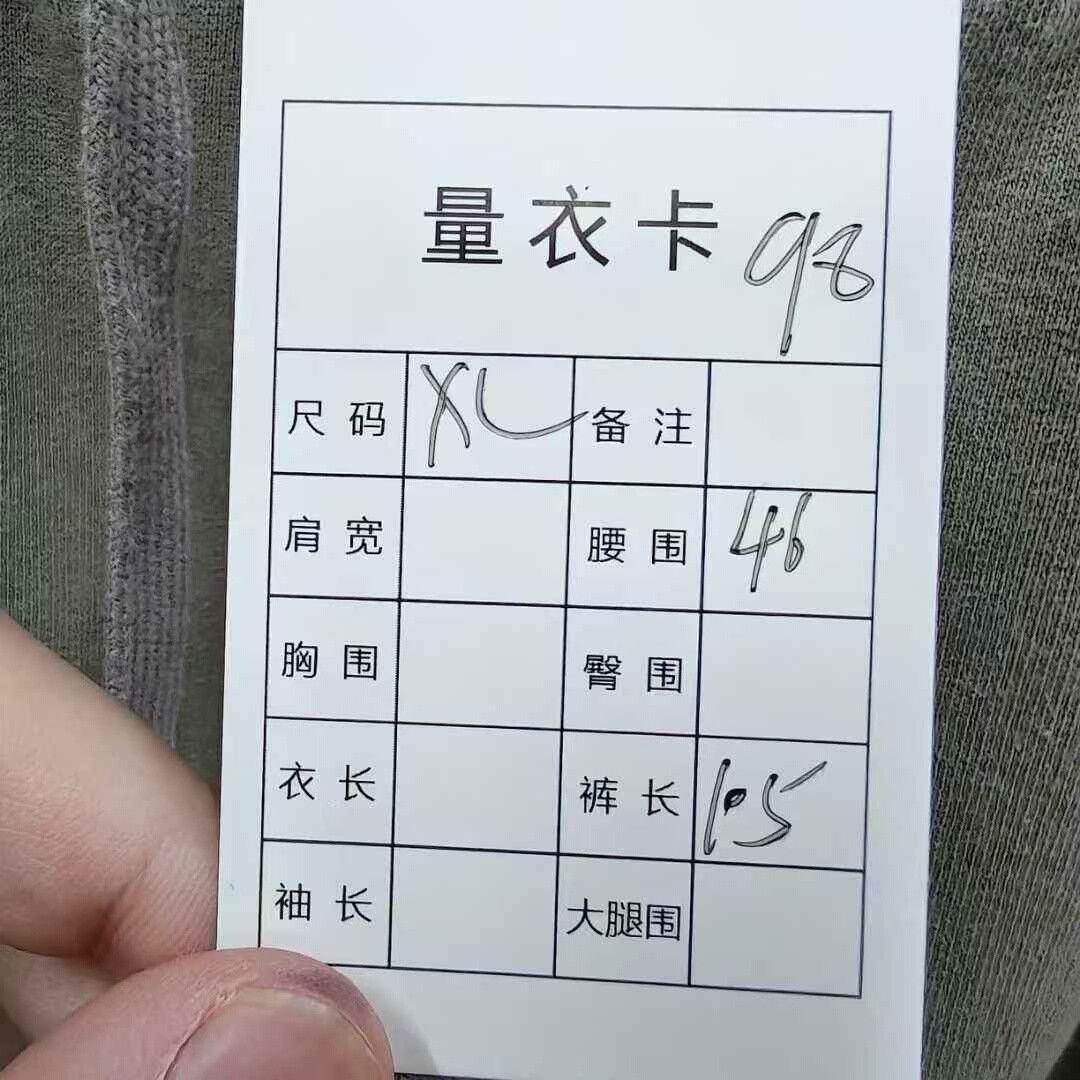 量衣卡 98
尺码 XL 备注
肩宽 腰围 46
胸围 臀围
衣长 裤长 105
袖长 大腿围